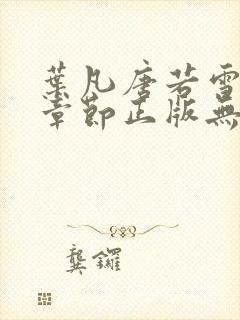 葉凡唐若雪
章節正版無
龔鑼